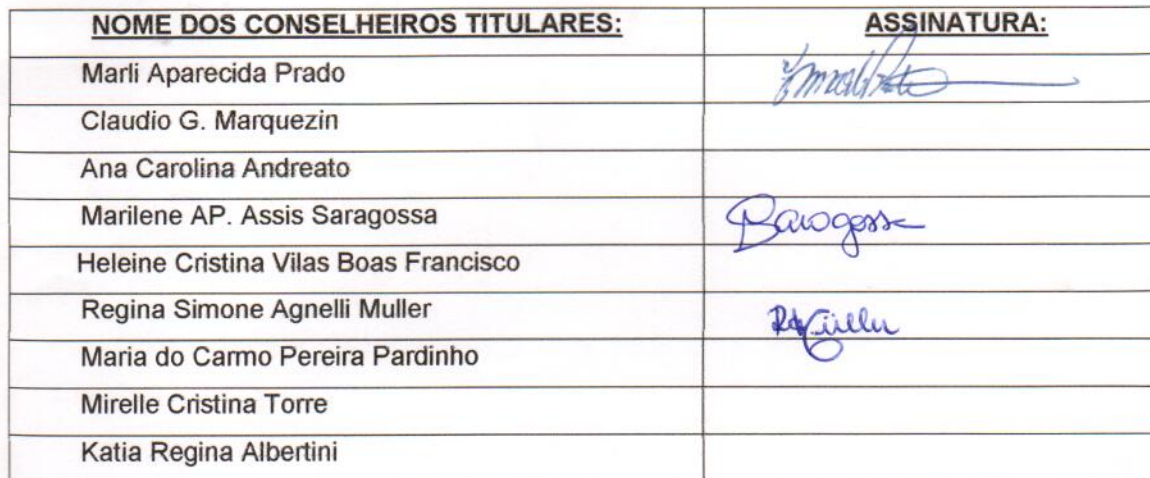 NOME DOS CONSELHEIROS TITULARES: ASSINATURA:
Marli Aparecida Prado
Claudio G. Marquezin
Ana Carolina Andreato
Marilene AP. Assis Saragossa
Heleine Cristina Vilas Boas Francisco
Regina Simone Agnelli Muller
Maria do Carmo Pereira Pardinho
Mirelle Cristina Torre
Katia Regina Albertini